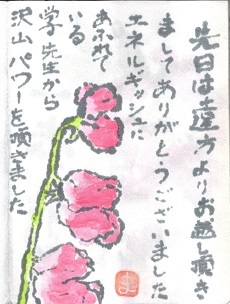 先日は遠方よりお越し頂き
ましてありがとうございました
エネルギッシュに
あふれて
いる
学先生から
沢山パワーを頂きました